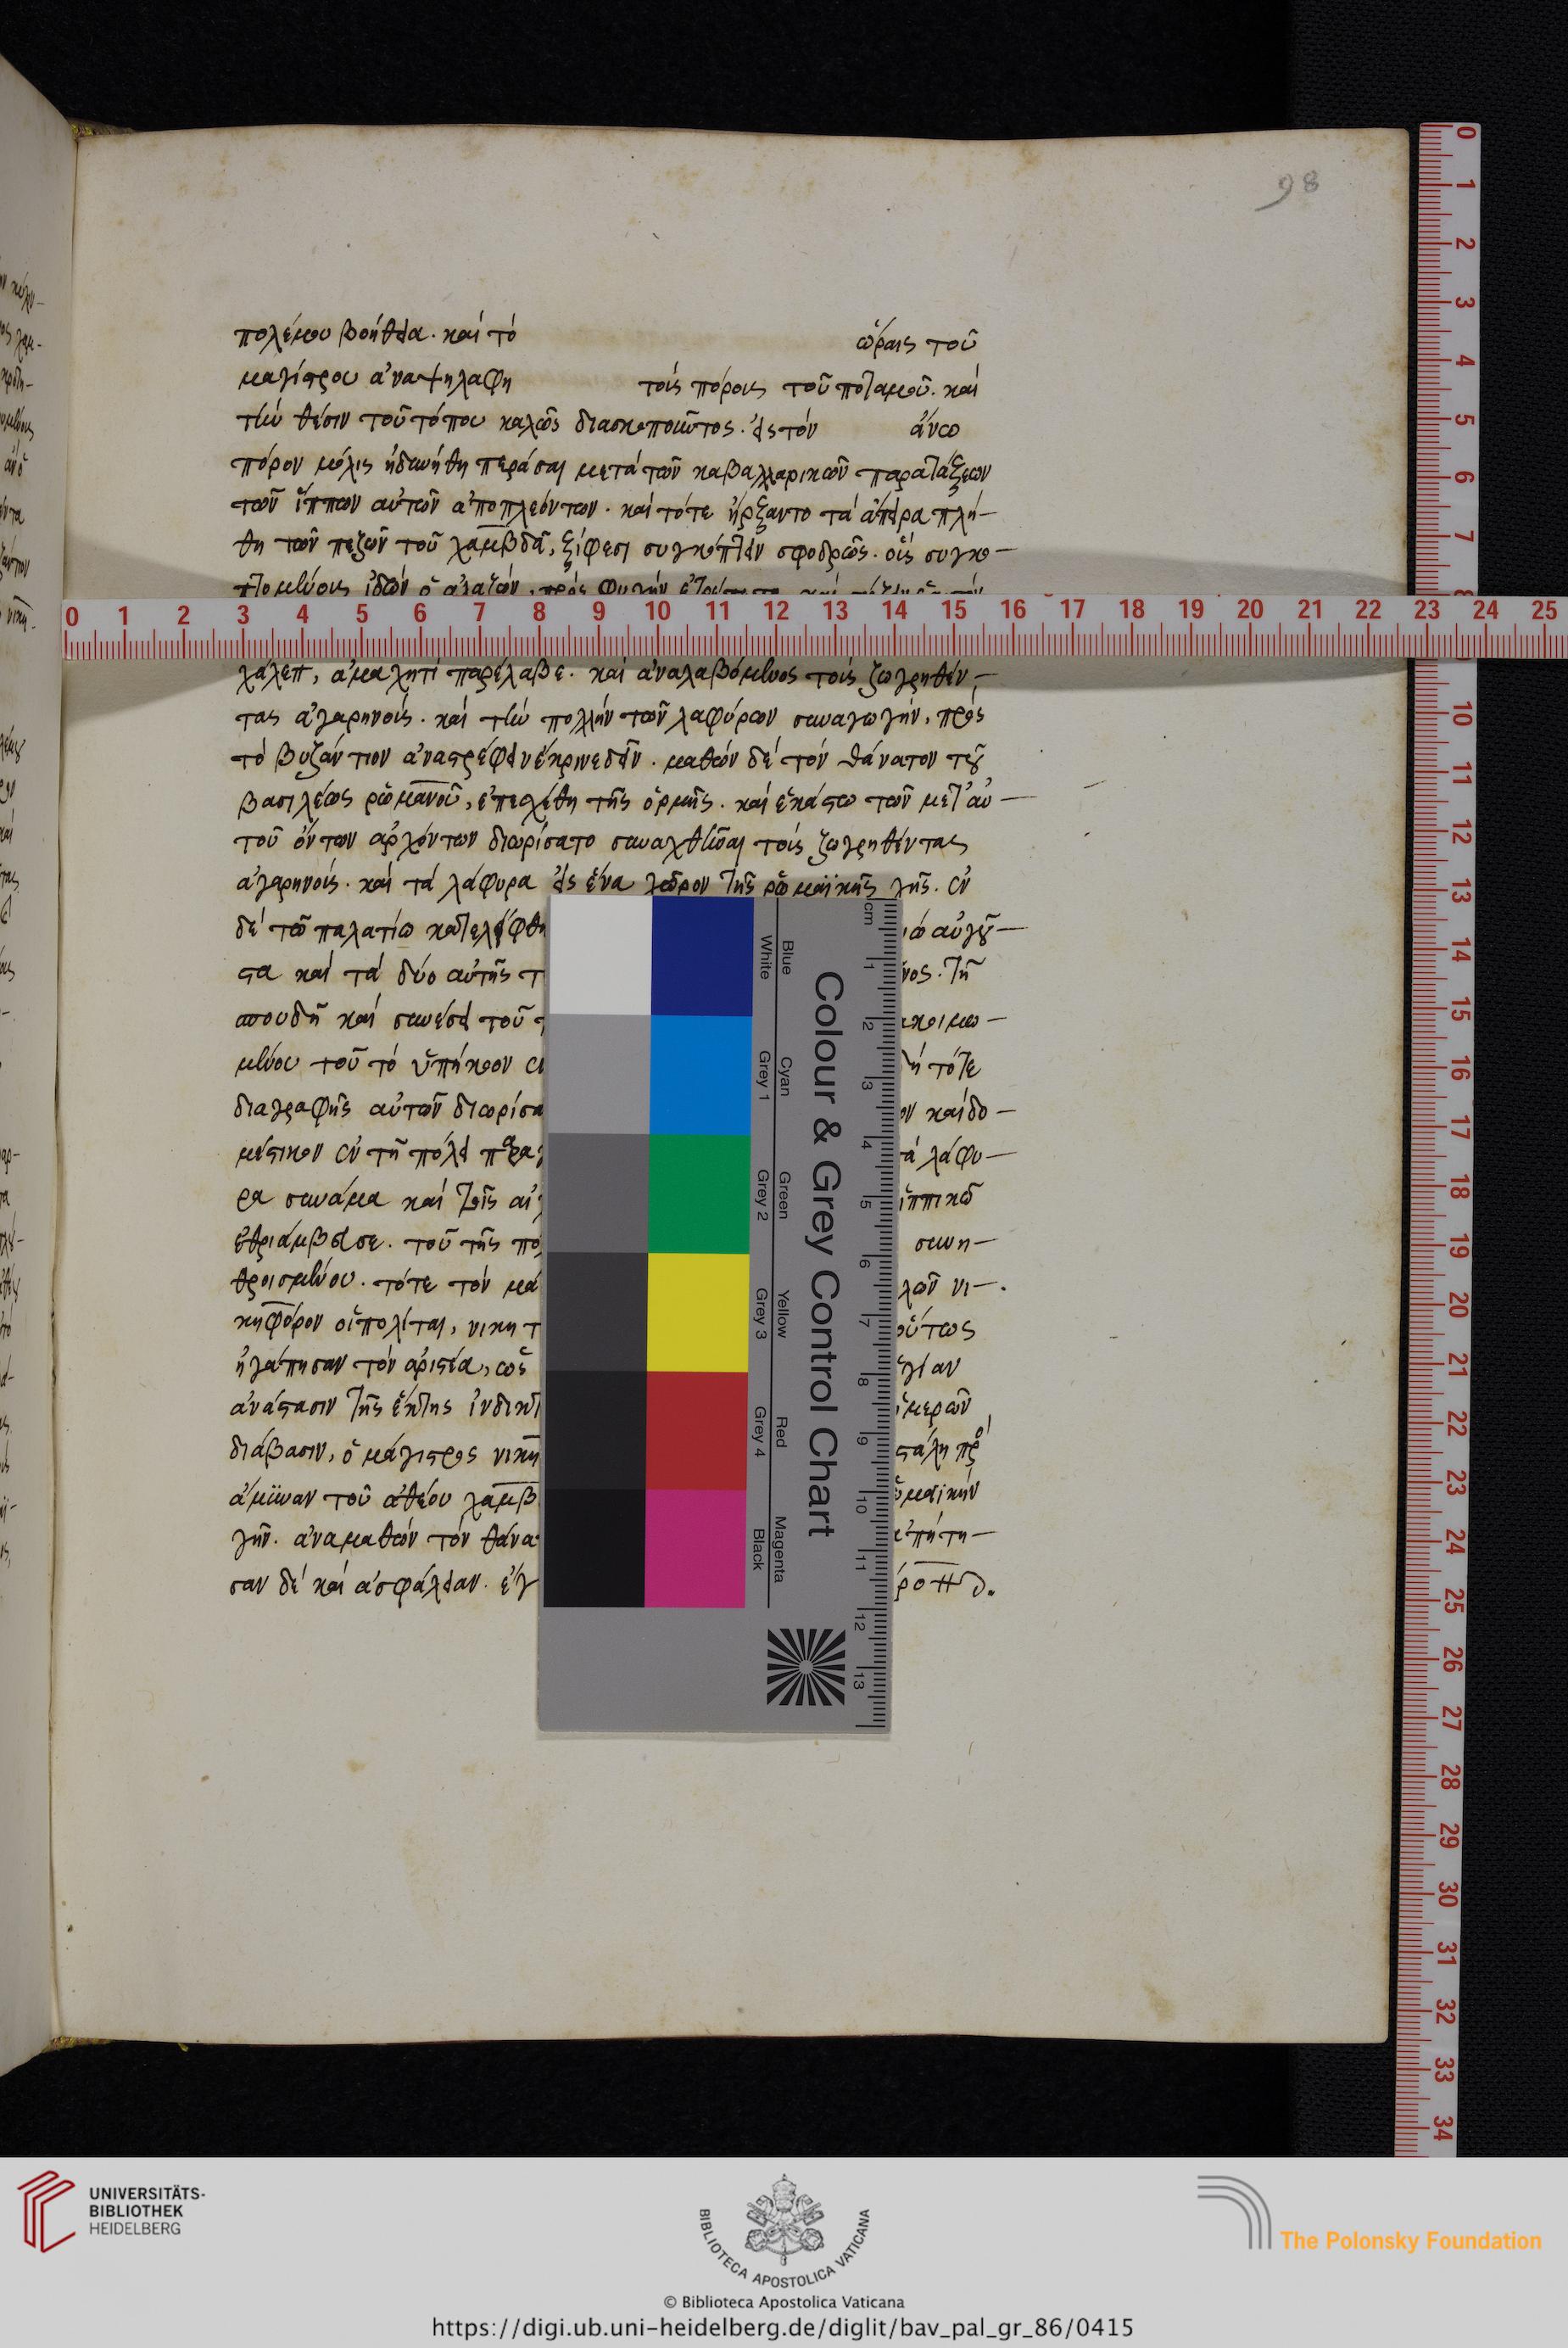 98
πολέμου βοήθεια. καὶ τὸ ὥραις τοῦ
μαγίστρου ἀναψηλαφη τοὺς πόρους τοῦ ποταμοῦ. καὶ
τὴν θέσιν τοῦ τόπου καλῶς διασκοποῦντος. εἰς τὸν ἄνω
πόρον μόλις ἠδυνήθη περάσαι μετὰ τῶν καβαλλαρικῶν παρατάξεων
τῶν ἵππων αὐτῶν ἀποπλεόντων. καὶ τότε ἤρξαντο τὰ ἄπειρα πλή-
θη τῶν πεζῶν τοῦ χαμβδᾶ, ξίφεσι συγκόπτειν σφοδρῶς. οὓς συγκο-
πτομένους ἰδὼν ὁ ἀλαζών, πρὸς φυγὴν
χάλεπ, ἀμαχητὶ παρέλαβε. καὶ ἀναλαβόμενος τοὺς ζωγρηθέν-
τας ἀγαρηνούς. καὶ τὴν πολλὴν τῶν λαφύρων συναγωγήν, πρὸς
τὸ βυζάντιον ἀναστρέφειν ἔκρινε δεῖν. μαθὼν δὲ τὸν θάνατον τοῦ
βασιλέως ῥωμανοῦ, ἐπεσχέθη τῆς ὁρμῆς. καὶ ἑκάστω τῶν μετ' αὐ-
τοῦ ὄντων ἀρχόντων διωρίσατο συναχθῆναι τοὺς ζωγρηθέντας
ἀγαρηνούς. καὶ τὰ λάφυρα εἰς ἕνα χῶρον τῆς ῥωμαϊκῆς γῆς. ἐν
δὲ τῶ παλατίω αὐγού-
στα καὶ τὰ δύο αὐτῆς τ νος. τῆ
σπουδῆ καὶ συνέσει τοῦ κοιμω-
μένου τοῦ τὸ ὑπήκοον τότε
διαγραφῆς αὐτῶν διωρίσα ον καὶ δο-
μέστικον ἐν τῆ πόλει παρα τὰ λάφυ-
ρα συνάμα καὶ τοῖς αἰ ἱππικῶ
ἐθριάμβευσε. τοῦ τῆς πο συνη-
θροισμένου. τότε τὸν μά λῶν νι-
κηφόρον οἱ πολίται, νικητ οὕτως
ἠγάπησαν τὸν ἀριστέα, ὡς ἁγίαν
ἀνάστασιν τῆς ἕκτης ἰνδικτ ἡμερῶν
διάβασιν, ὁ μάγιστρος νικη στάλη πρὸς
ἄμυναν τοῦ ἀθέου χαμβ ῥωμαϊκὴν
γῆν. ἀναμαθὼν τὸν θάνα ἀπήτη-
σαν δὲ καὶ ἀσφάλειαν. ἐγ
0 1 2 3 4 5 6 7 8 9 10 11 12 13 14 15 16 17 18 19 20 21 22 23 24 25
0 1 2 3 4 5 6 7 10 11 12 13 14 15 16 17 18 19 20 21 22 23 24 25 26 27 28 29 30 31 32 33 34
Colour & Grey Control Chart
Blue Cyan Green Yellow Red Magenta
White Grey 1 Grey 2 Grey 3 Grey 4 Black
cm 1 2 3 4 5 6 7 8 9 10 11 12 13
UNIVERSITÄTS-
BIBLIOTHEK
HEIDELBERG
BIBLIOTECA APOSTOLICA VATICANA
© Biblioteca Apostolica Vaticana
The Polonsky Foundation
https://digi.ub.uni-heidelberg.de/diglit/bav_pal_gr_86/0415